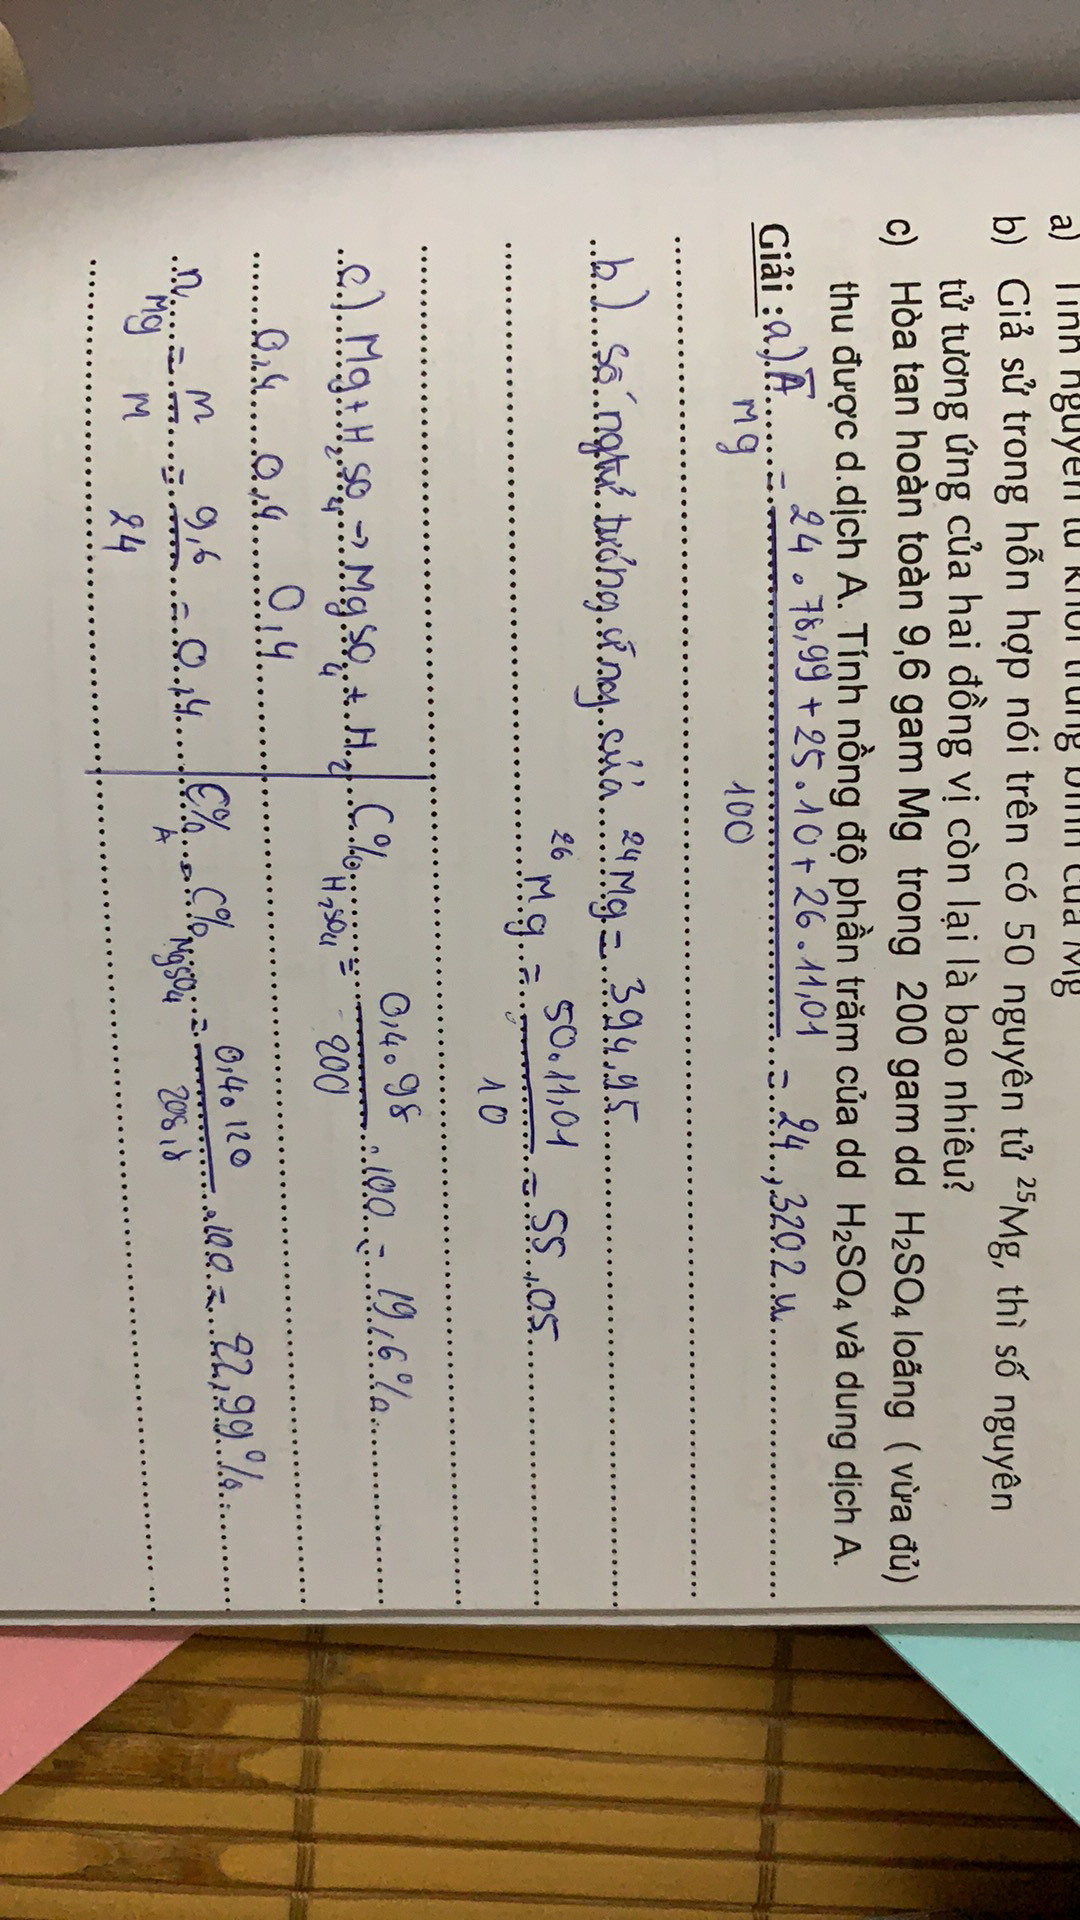 a) Tính nguyên tử khối trung bình của Mg
b) Giả sử trong hỗn hợp nói trên có 50 nguyên tử ²⁵Mg, thì số nguyên
tử tương ứng của hai đồng vị còn lại là bao nhiêu?
c) Hòa tan hoàn toàn 9,6 gam Mg trong 200 gam dd H₂SO₄ loãng ( vừa đủ)
thu được d.dịch A. Tính nồng độ phần trăm của dd H₂SO₄ và dung dịch A.
Giải : a) A̅ Mg = (24.78,99 + 25.10 + 26.11,01) / 100 = 24,3202 u
b) số ngtử tướng ứng của ²⁴Mg = 394,95
²⁶Mg = 50.11,01 / 10 = 55,05
c) Mg + H₂SO₄ → MgSO₄ + H₂ C% H₂SO₄ = 0,4.98 / 200 .100 = 19,6%
0,4 0,4 0,4
n Mg = m / M = 9,6 / 24 = 0,4 C% A = C% MgSO₄ = 0,4.120 / 208,8 .100 = 22,99%